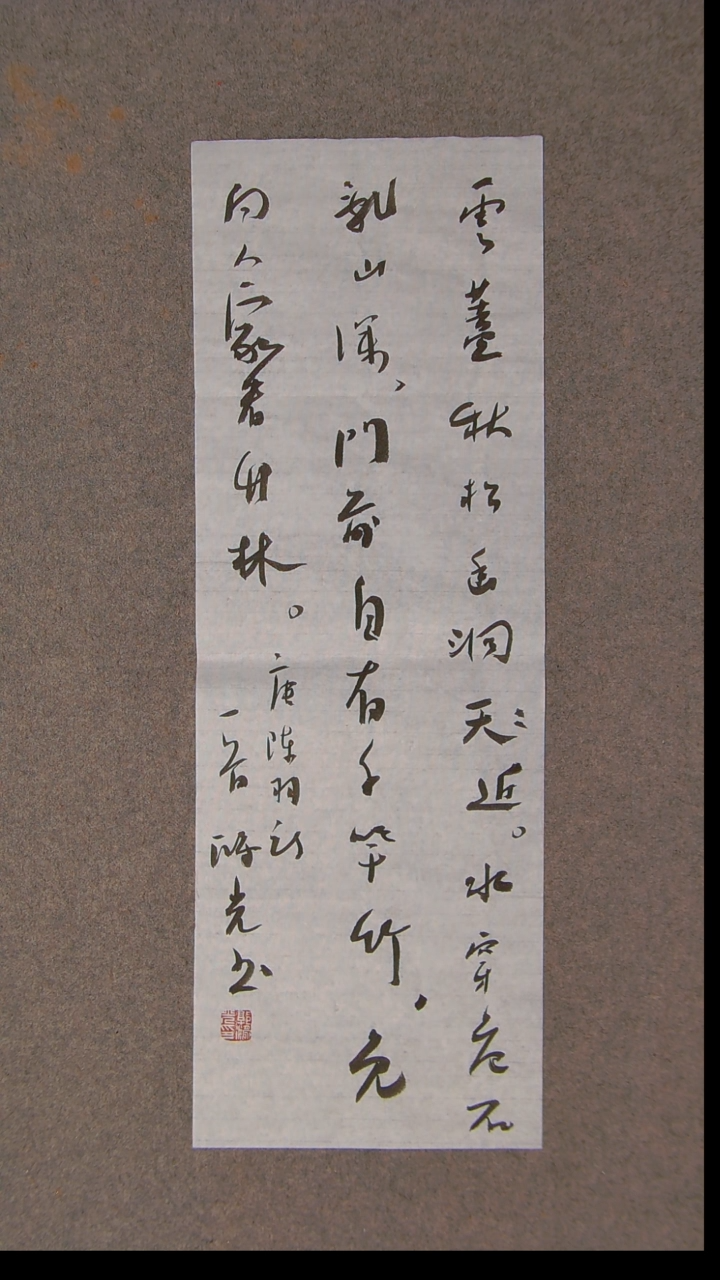 雲蓋秋松幽洞天近。水穿危石
亂山深、門前自有千竿竹,免
向人家看竹林。
唐陳羽詩
光书